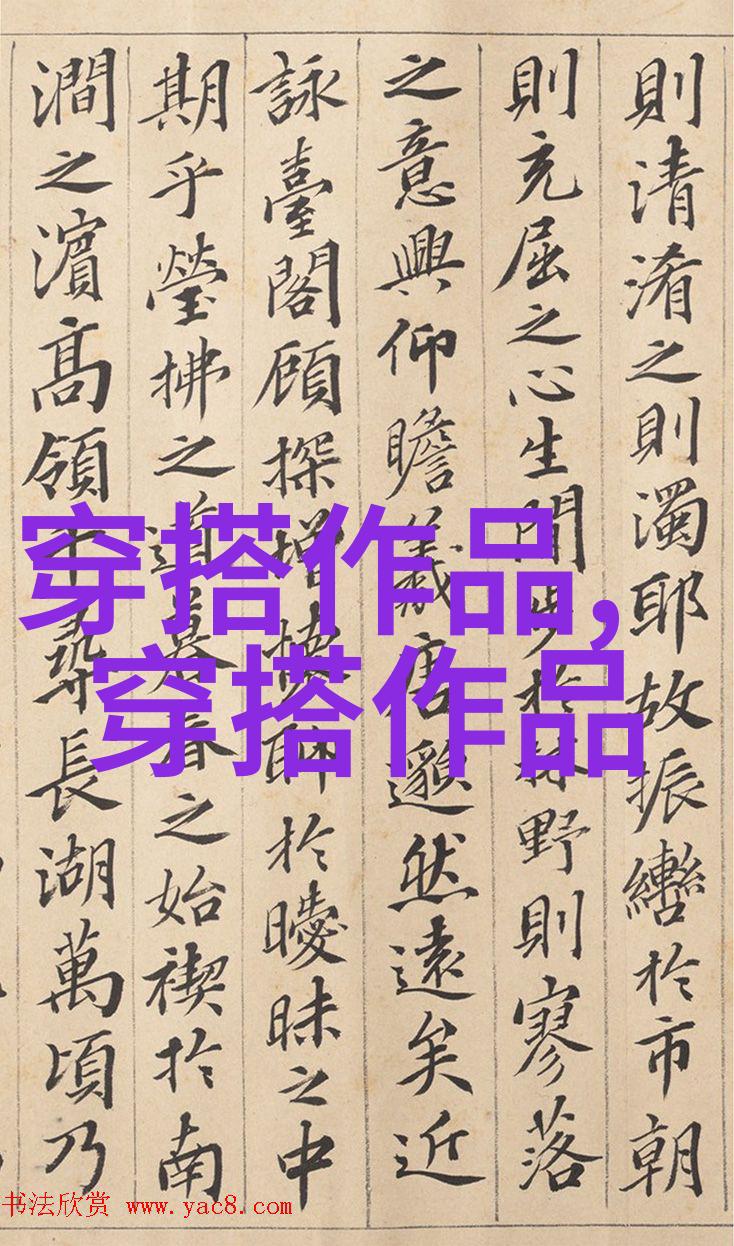 則清淆之則濁耶故振轡於市朝
則充屈之心生閒步於林野則寥落
之意興仰瞻羲唐邈然遠矣近
詠臺閣顧探增懷聊於曖昧之中
期乎瑩拂之道暮春之始禊於南
澗之濱高領千尋長湖萬頃乃
穿搭作品,
穿搭作品
书法欣赏 www.yac8.com